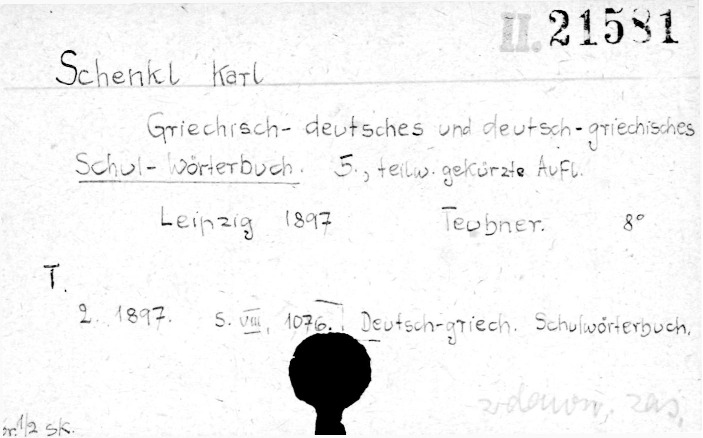 II. 21581
Schenkl Karl
Griechisch-deutsches und deutsch-griechisches
Schul-Wörterbuch. 5., teilw. gekürzte Aufl.
Leipzig 1897 Teubner. 8°
T.
2. 1897. S. VIII, 1076. Deutsch-griech. Schulwörterbuch.
1/2 sk.